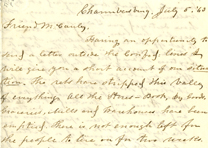 Chambersburg, July 5, '63
Friend McCauly,
Having an opportunity to
send a letter outside the Conf'd. lines I
will give you a short account of our situa
tion. The rebs have stripped this Valley
of everything. All the Stores - Book, dry goods,
Groceries, Mills and Warehouses have been
emptied. There is not enough left for
the people to live on for two weeks